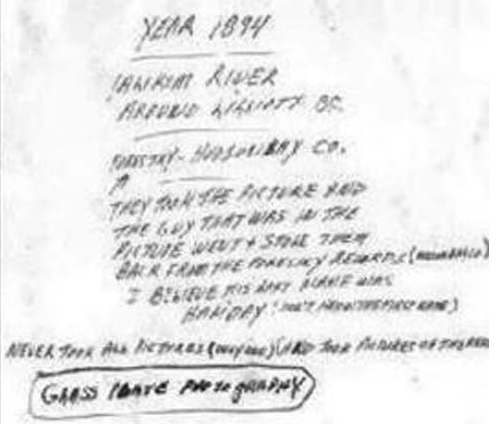 YEAR 1894
RIVER
AROUND LILLOOET BC.
FORESTRY - HUDSON BAY CO.
THEY TOOK THE PICTURE AND
THE GUY THAT WAS IN THE
PICTURE WENT & STOLE THEM
BACK FROM THE FORESTRY
I BELIEVE HIS LAST NAME WAS
(DON'T KNOW THE FIRST NAME)
NEVER TOOK ALL PICTURES AND TOOK PICTURES OF
GLASS PLATE PHOTOGRAPHY